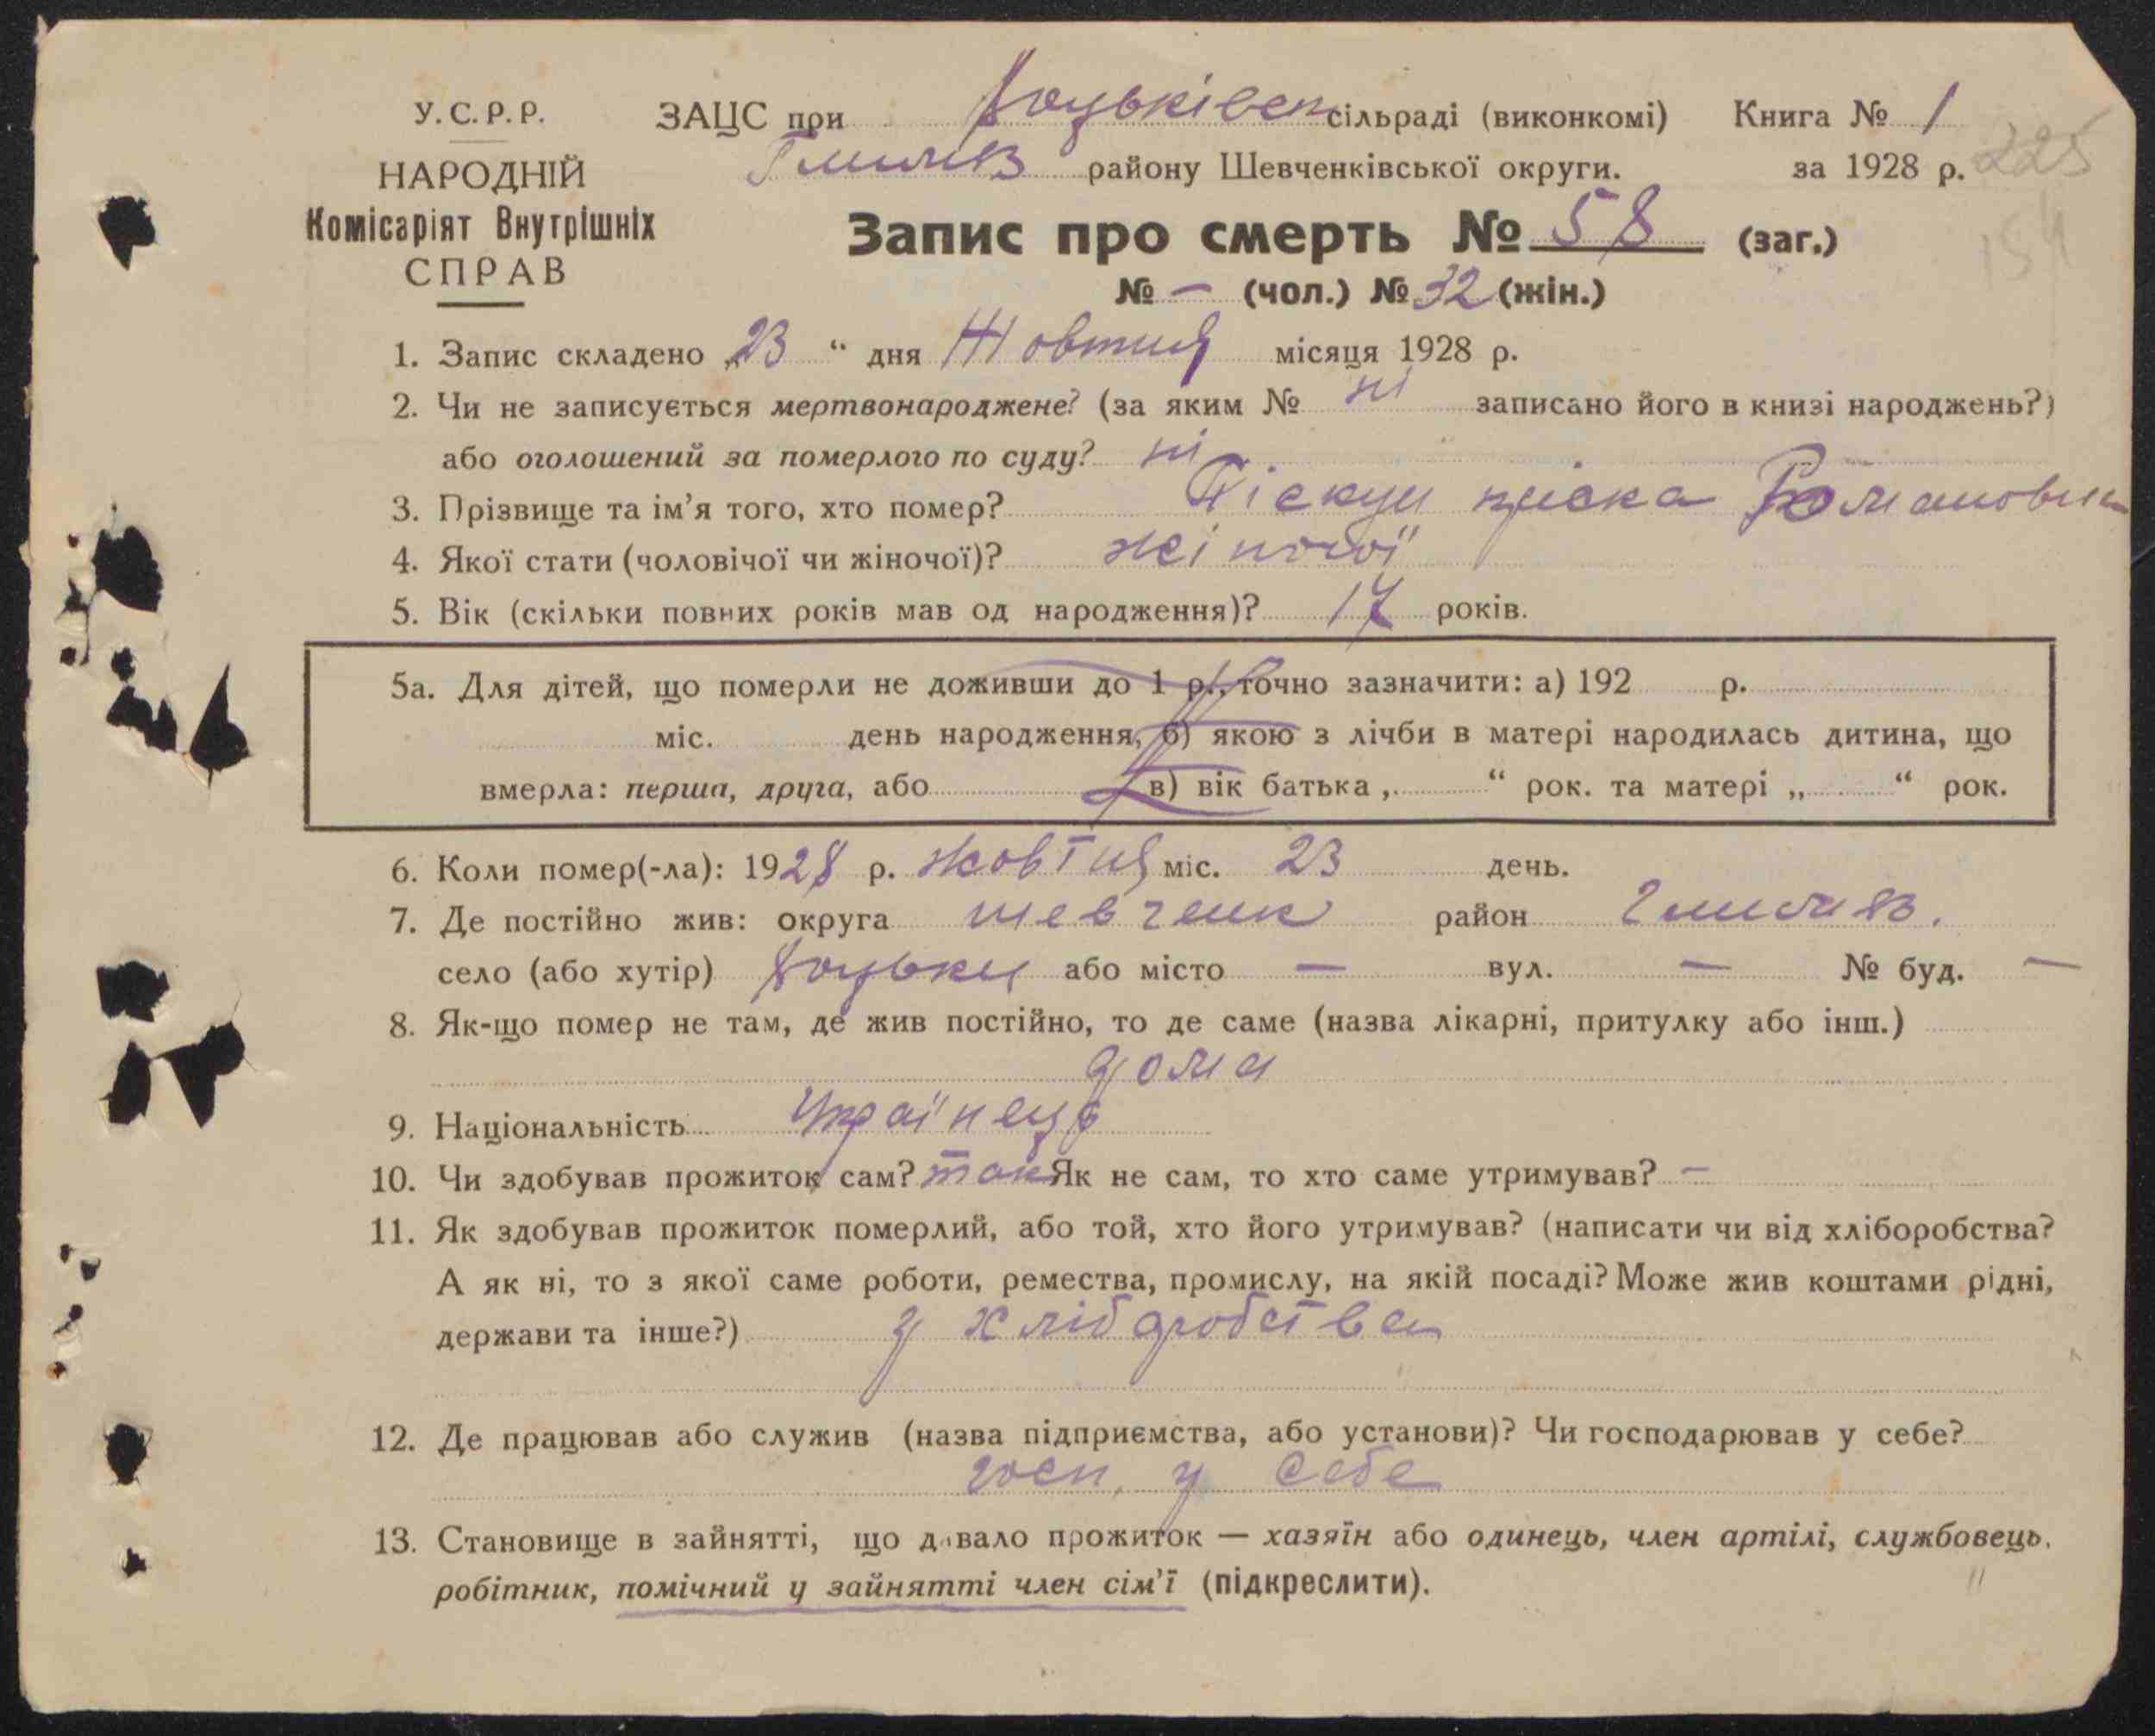 У.С.Р.Р.
НАРОДНІЙ
Комісаріят Внутрішніх
СПРАВ
ЗАЦС при Яцьківск сільраді (виконкомі) Книга № 1
району Шевченківської округи. за 1928 р. 225
Запис про смерть № 58 (заг.) 154
№ — (чол.) № 32 (жін.)
1. Запис складено „23“ дня Жовтня місяця 1928 р.
2. Чи не записується мертвонароджене? (за яким № ні записано його в книзі народжень?)
або оголошений за померлого по суду? ні
3. Прізвище та ім'я того, хто помер? Піскун Пріська Романовна
4. Якої стати (чоловічої чи жіночої)? жіночої
5. Вік (скільки повних років мав од народження)? 17 років.
5а. Для дітей, що померли не доживши до 1 р., точно зазначити: а) 192 р.
міс. день народження, б) якою з лічби в матері народилась дитина, що
вмерла: перша, друга, або в) вік батька „ “ рок. та матері „ “ рок.
6. Коли помер(-ла): 1928 р. жовтня міс. 23 день.
7. Де постійно жив: округа шевченк район
село (або хутір) або місто — вул. — № буд. —
8. Як-що помер не там, де жив постійно, то де саме (назва лікарні, притулку або інш.)
дома
9. Національність Українець
10. Чи здобував прожиток сам? так Як не сам, то хто саме утримував? —
11. Як здобував прожиток померлий, або той, хто його утримував? (написати чи від хліборобства?
А як ні, то з якої саме роботи, ремества, промислу, на якій посаді? Може жив коштами рідні,
держави та інше?) з хліборобства
12. Де працював або служив (назва підприємства, або установи)? Чи господарював у себе?
госп. у себе
13. Становище в зайнятті, що давало прожиток — хазяїн або одинець, член артілі, службовець,
робітник, помічний у зайнятті член сім'ї (підкреслити).